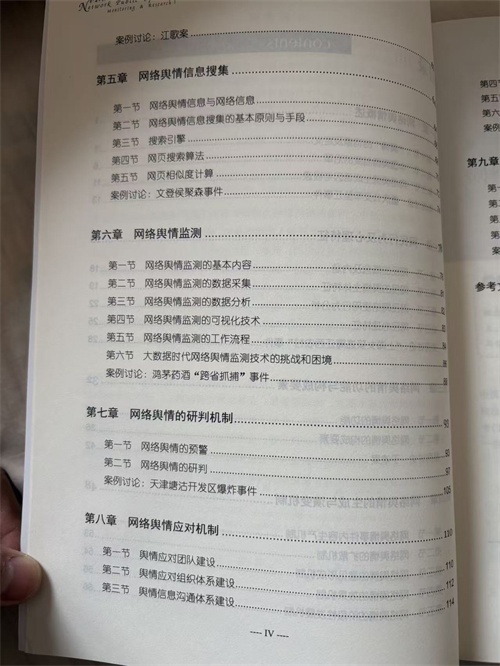 Network Public
monitoring & research
案例讨论：江歌案
第五章 网络舆情信息搜集
第一节 网络舆情信息与网络信息
第二节 网络舆情信息搜集的基本原则与手段
第三节 搜索引擎
第四节 网页搜索算法
第五节 网页相似度计算
案例讨论：文登侯聚森事件
第六章 网络舆情监测
第一节 网络舆情监测的基本内容
第二节 网络舆情监测的数据采集
第三节 网络舆情监测的数据分析
第四节 网络舆情监测的可视化技术
第五节 网络舆情监测的工作流程
第六节 大数据时代网络舆情监测技术的挑战和困境
案例讨论：鸿茅药酒“跨省抓捕”事件
第七章 网络舆情的研判机制 93
第一节 网络舆情的预警 93
第二节 网络舆情的研判 97
案例讨论：天津塘沽开发区爆炸事件 105
第八章 网络舆情应对机制 110
第一节 舆情应对团队建设 110
第二节 舆情应对组织体系建设 112
第三节 舆情信息沟通体系建设 114
IV
第四
第五
第六
案例
第九章
第一
第二
第三
案例
参考文